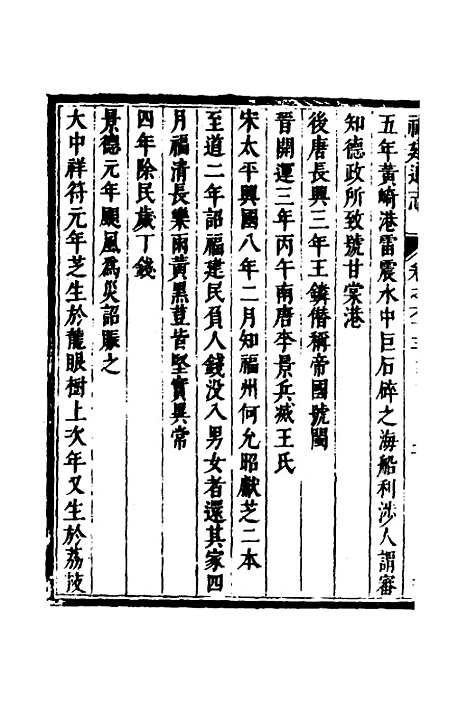 福建通志
五年黃崎港雷震水中巨石碎之海船利涉人謂審
知德政所致號甘棠港
後唐長興三年王鏻僭稱帝國號閩
晉開運三年丙午南唐李景兵滅王氏
宋太平興國八年二月知福州何允昭獻芝二本
至道二年詔福建民負人錢没入男女者還其家四
月福清長樂雨黃黑荳皆堅實異常
四年除民歲丁錢
景德元年颶風為災詔賑之
大中祥符元年芝生於龍眼樹上次年又生於荔枝